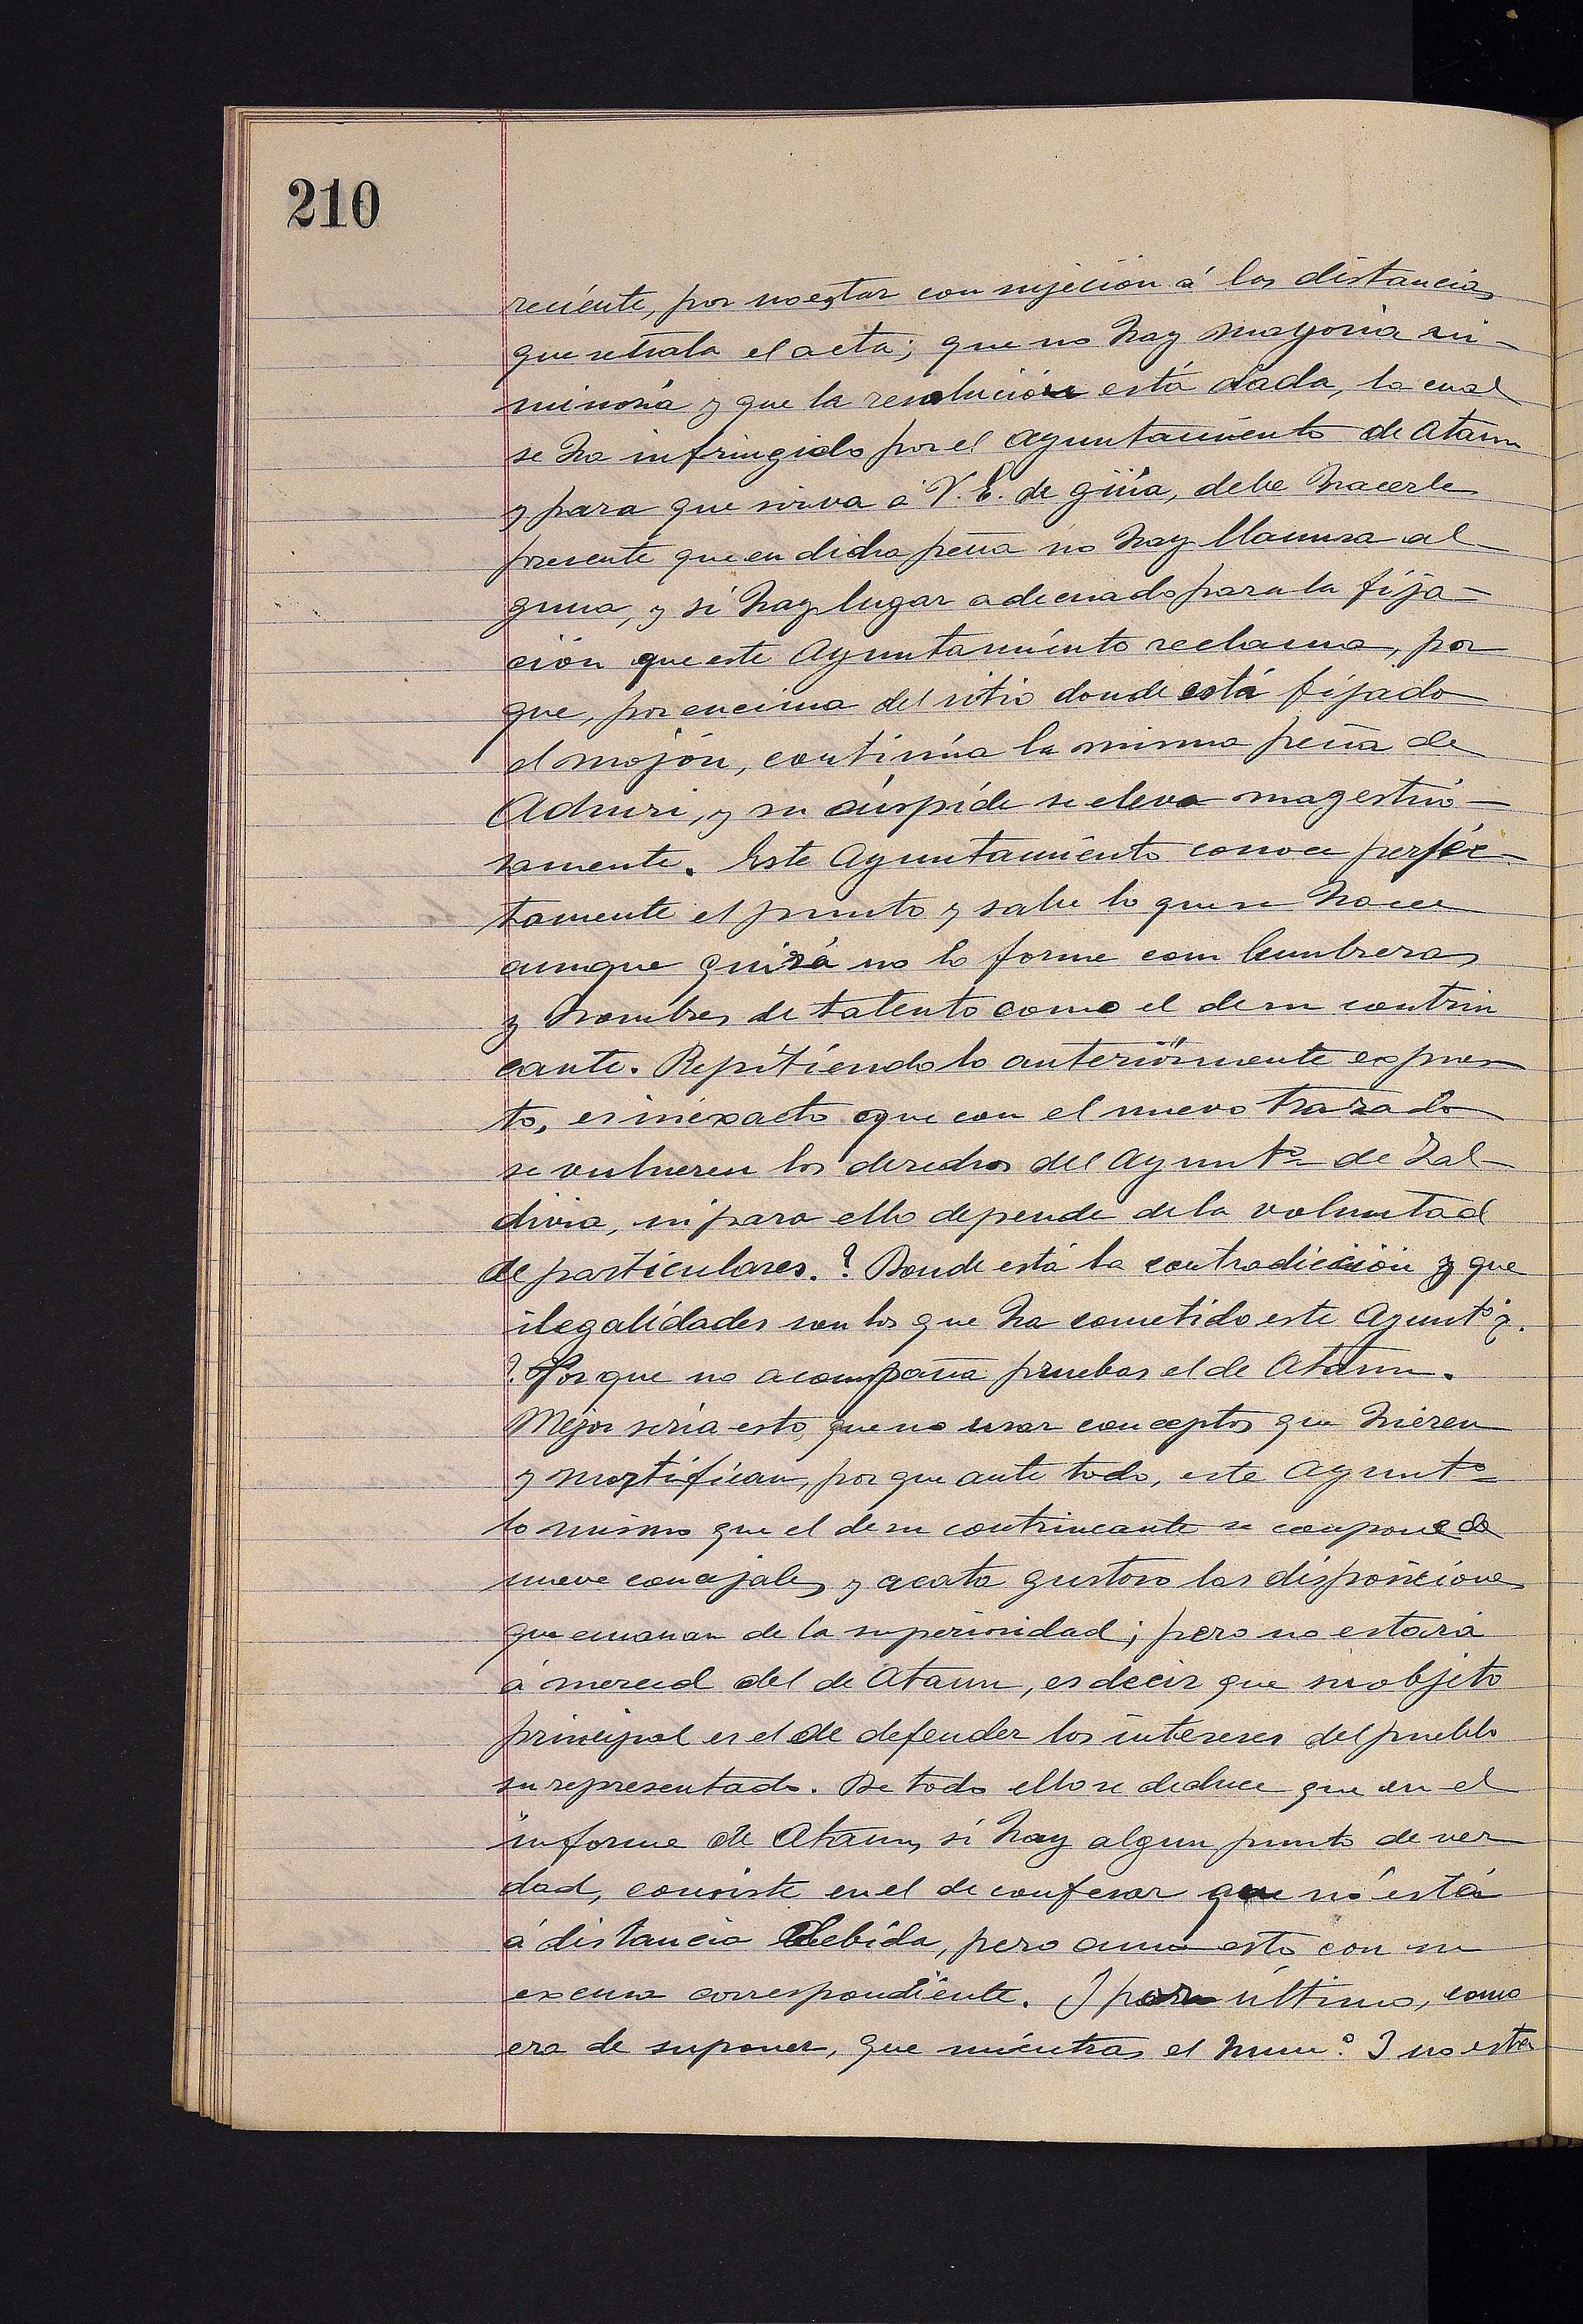 210
reciente, por no estar con sujeción á las distancias
que señala el acta; que no hay mayoria ni
minoria y que la resolución está dada, la cual
se ha infringido por el Ayuntamiento de Ataun
y para que sirva á V. E. de güia, debe hacerle
presente que en dicha peña no hay llanura al-
guna, y si hay lugar adecuado para la fija-
ción que este Ayuntamiento reclama, por
que, por encima del sitio donde está fijado
el mojón, continúa la misma peña de
Adruri, y su cúspide se eleva magestuo-
samente. Este Ayuntamiento conoce perféc-
tamente el punto y sabe lo que se hace
aunque quizá no lo forme con lumbreras
y hombres de talento como el de su contrin
cante. Repitiendo lo anteriormente expues
to, es inexacto que con el nuevo trazado
se vulneren los derechos del Ayuntº de Zal-
divia, ni para ello depende de la voluntad
de particulares. ? Donde está la contradicción y que
ilegalidades son las que ha cometido este Ayuntº ¿.
? Por que no acompaña pruebas el de Ataun.
Mejor seria esto, que no usar conceptos que hieren
y mortifican, por que ante todo, este Ayuntº
lo mismo que el de su contrincante se compone de
nueve concejales y acata gustoso las disposiciones
que emanan de la superioridad; pero no estará
á merced del de Ataun, es decir que su objeto
principal es el de defender los intereses del pueblo
su representado. De todo ello se deduce que en el
informe de Ataun, si hay algun punto de ver
dad, consiste en el de confesar que nó está
á distancia debida, pero aun esto con su
excusa correspondiente. Y por último, como
era de suponer, que mientras el num.º I no esta